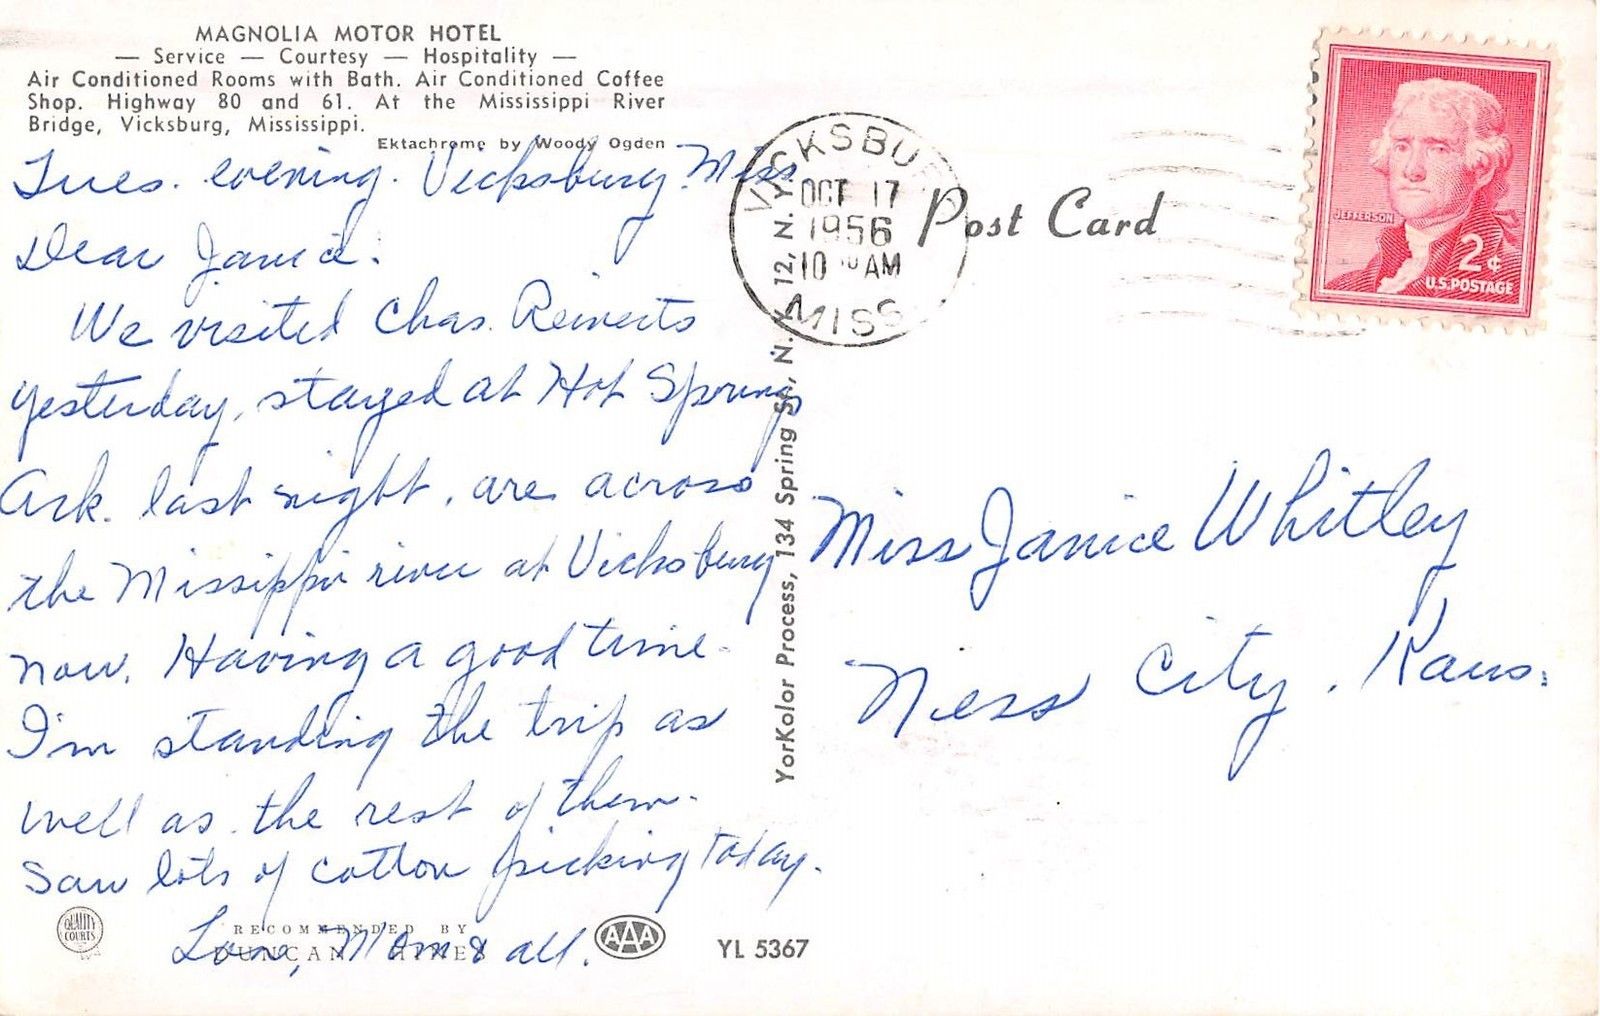 MAGNOLIA MOTOR HOTEL
— Service — Courtesy — Hospitality —
Air Conditioned Rooms with Bath. Air Conditioned Coffee
Shop. Highway 80 and 61. At the Mississippi River
Bridge, Vicksburg, Mississippi.
Ektachrome by Woody Ogden
Tues. evening. Vicksburg. Miss
Dear Janice:
We visited Chas. Reinerts
yesterday, stayed at Hot Springs
Ark. last night, are across
the Missippi river at Vicksburg
now. Having a good time.
I'm standing the trip as
well as the rest of them.
Saw lots of cotton picking today.
Love, Mom & all.
QUALITY
COURTS
RECOMMENDED BY
DUNCAN HINES
AAA
YL 5367
YorKolor Process, 134 Spring St., N. Y. 12, N. Y.
VICKSBURG
OCT 17
1956
10 AM
MISS
Post Card
JEFFERSON
2¢
U.S. POSTAGE
Miss Janice Whitley
Ness City, Kans.